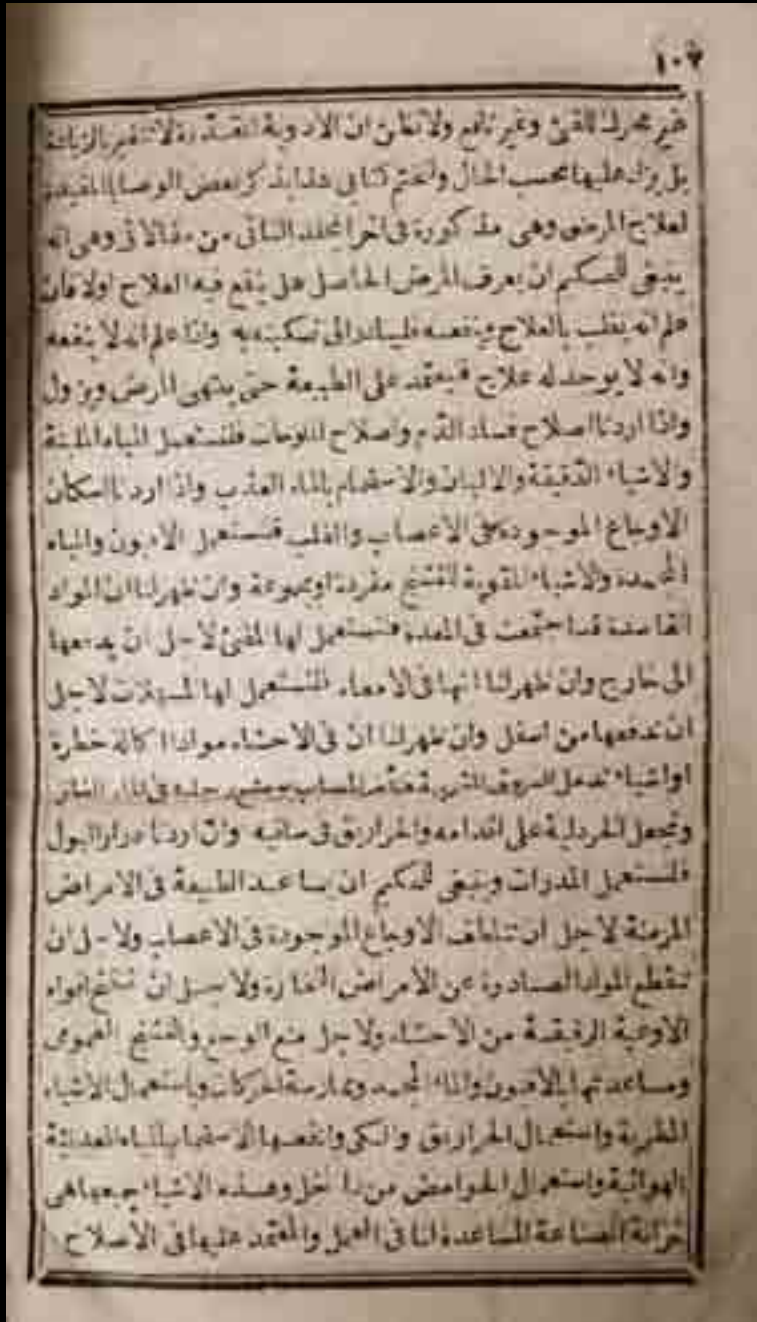 ١٠٧
غير محرك للقئ وغير نافع ولا تظن ان الادوية لا تتغير بالزيادة
بل يزاد عليها بحسب الحال ولنختم كتابى هذا بذكر بعض الوصايا المفيدة
لعلاج المرضى وهى مذكورة فى اخر المجلد الثانى من مقالاتى وهى انه
ينبغى للحكيم ان يعرف المرض الحاصل هل ينفع فيه العلاج اولا فان
علم انه يغلب بالعلاج فليبادر الى تسكينه به واذا علم انه لا ينفعه
وانه لا يوجد له علاج فيعتمد على الطبيعة حتى ينتهى المرض ويزول
واذا اردنا اصلاح فساد الدم واصلاح فلنستعمل المياه الملينة
والاشياء الدقيقة والالبان والاستحمام بالماء العذب واذا اردنا اسكان
الاوجاع الموجودة فى الاعصاب والقلب فنستعمل الافيون والمياه
المجمدة والاشياء المقوية للتشنج مفردة او مجموعة وان ظهر لنا ان المواد
الفاسدة قد اجتمعت فى المعدة فنستعمل لها المقئ لاجل ان يدفعها
الى خارج وان ظهر لنا انها فى الامعاء فلنستعمل لها المسهلات لاجل
ان تدفعها من اسفل وان ظهر لنا ان فى الاحشاء موادا اكالة خطرة
او اشياء رجليه فى الماء
وتجعل الخردلية على اقدامه والحراريق فى ساقيه وان اردنا ادرار البول
فلنستعمل المدرات وينبغى للحكيم ان يساعد الطبيعة فى الامراض
المزمنة لاجل ان تتلطف الاوجاع الموجودة فى الاعصاب ولاجل ان
تنقطع المواد الصادرة عن الامراض ولاجل ان تنفتح افواه
الاوعية الرقيقة من الاحشاء ولاجل منع الوجع والتشنج العمومى
ومساعدتها بالافيون والماء المجمد وممارسة الحركات وباستعمال الاشياء
المطرية واستعمال الحراريق والكى وانفعها الاستحمام بالمياه المعدنية
الهوائية واستعمال الحوامض من داخل وهذه الاشياء جميعها هى
خزانة الصناعة المساعدة لنا فى العمل والمعتمد عليها فى الاصلاح